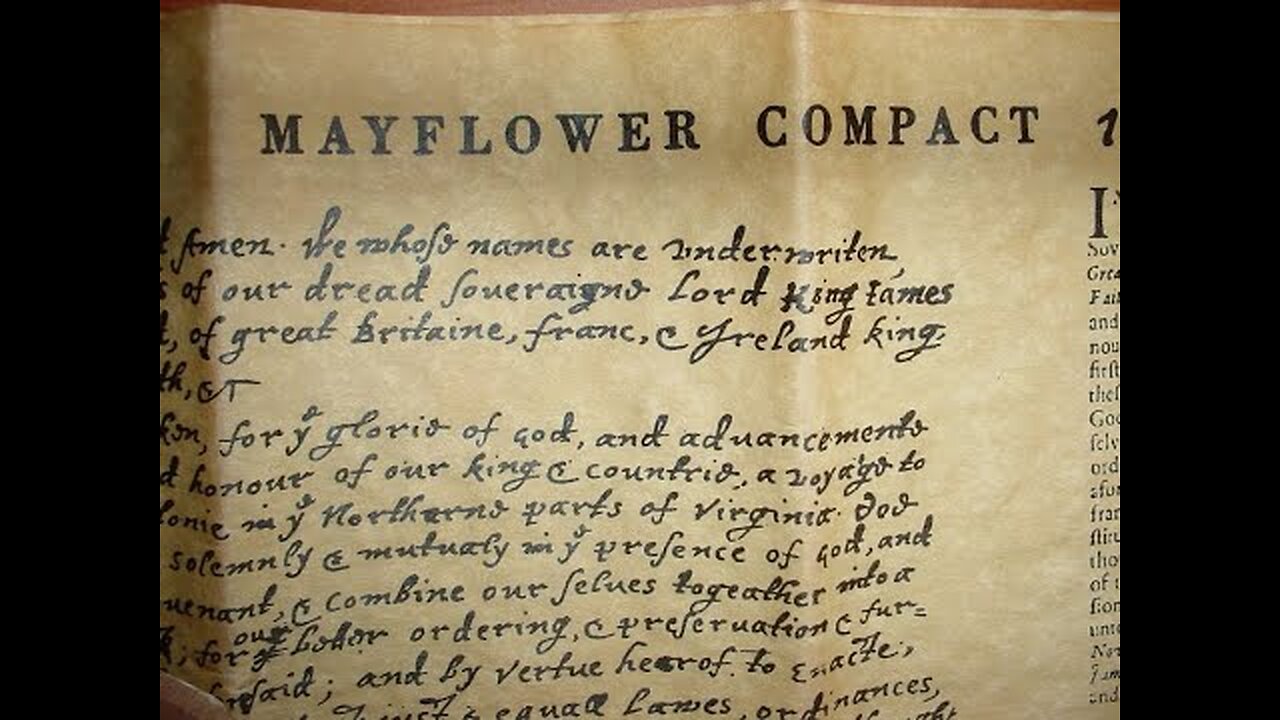 MAYFLOWER COMPACT 1
Amen. We whose names are vnderwriten,
of our dread soueraigne Lord King James
of great Britaine, franc, & Ireland king,
th, &c
ken, for yᵉ glorie of god, and aduancemente
honour of our king & countrie, a voyage to
lonie in yᵉ Northerne parts of Virginia. doe
solemnly & mutualy in yᵉ presence of god, and
uenant, & combine our selues togeather into a
for our better ordering, & preseruation & fur=
resaid; and by vertue hearof to Enacte,
just & equall Lawes, ordinances,
I
Sov
Grea
Fait
and
nou
firſt
theſ
God
ſelv
ord
afor
fran
ſtitu
tho
of t
ſion
unto
Nov
Jam
and